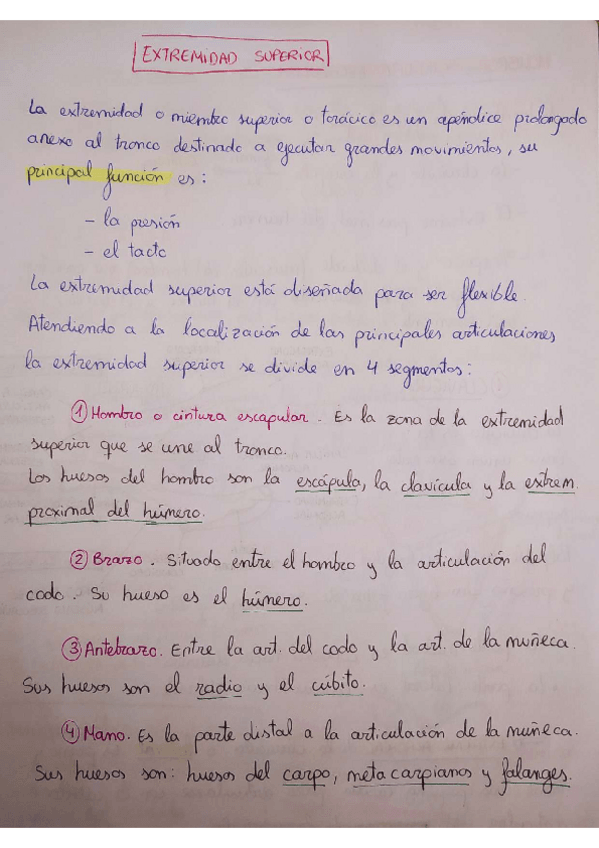 EXTREMIDAD SUPERIOR
La extremidad o miembro superior o torácico es un apéndice prolongado
anexo al tronco destinado a ejecutar grandes movimientos, su
principal función es:
- la presión
- el tacto
La extremidad superior está diseñada para ser flexible.
Atendiendo a la localización de las principales articulaciones
la extremidad superior se divide en 4 segmentos:
① Hombro o cintura escapular. Es la zona de la extremidad
superior que se une al tronco.
Los huesos del hombro son la escápula, la clavícula y la extrem.
proximal del húmero.
② Brazo. Situado entre el hombro y la articulación del
codo. Su hueso es el húmero.
③ Antebrazo. Entre la art. del codo y la art. de la muñeca.
Sus huesos son el radio y el cúbito.
④ Mano. Es la parte distal a la articulación de la muñeca.
Sus huesos son: huesos del carpo, metacarpianos y falanges.